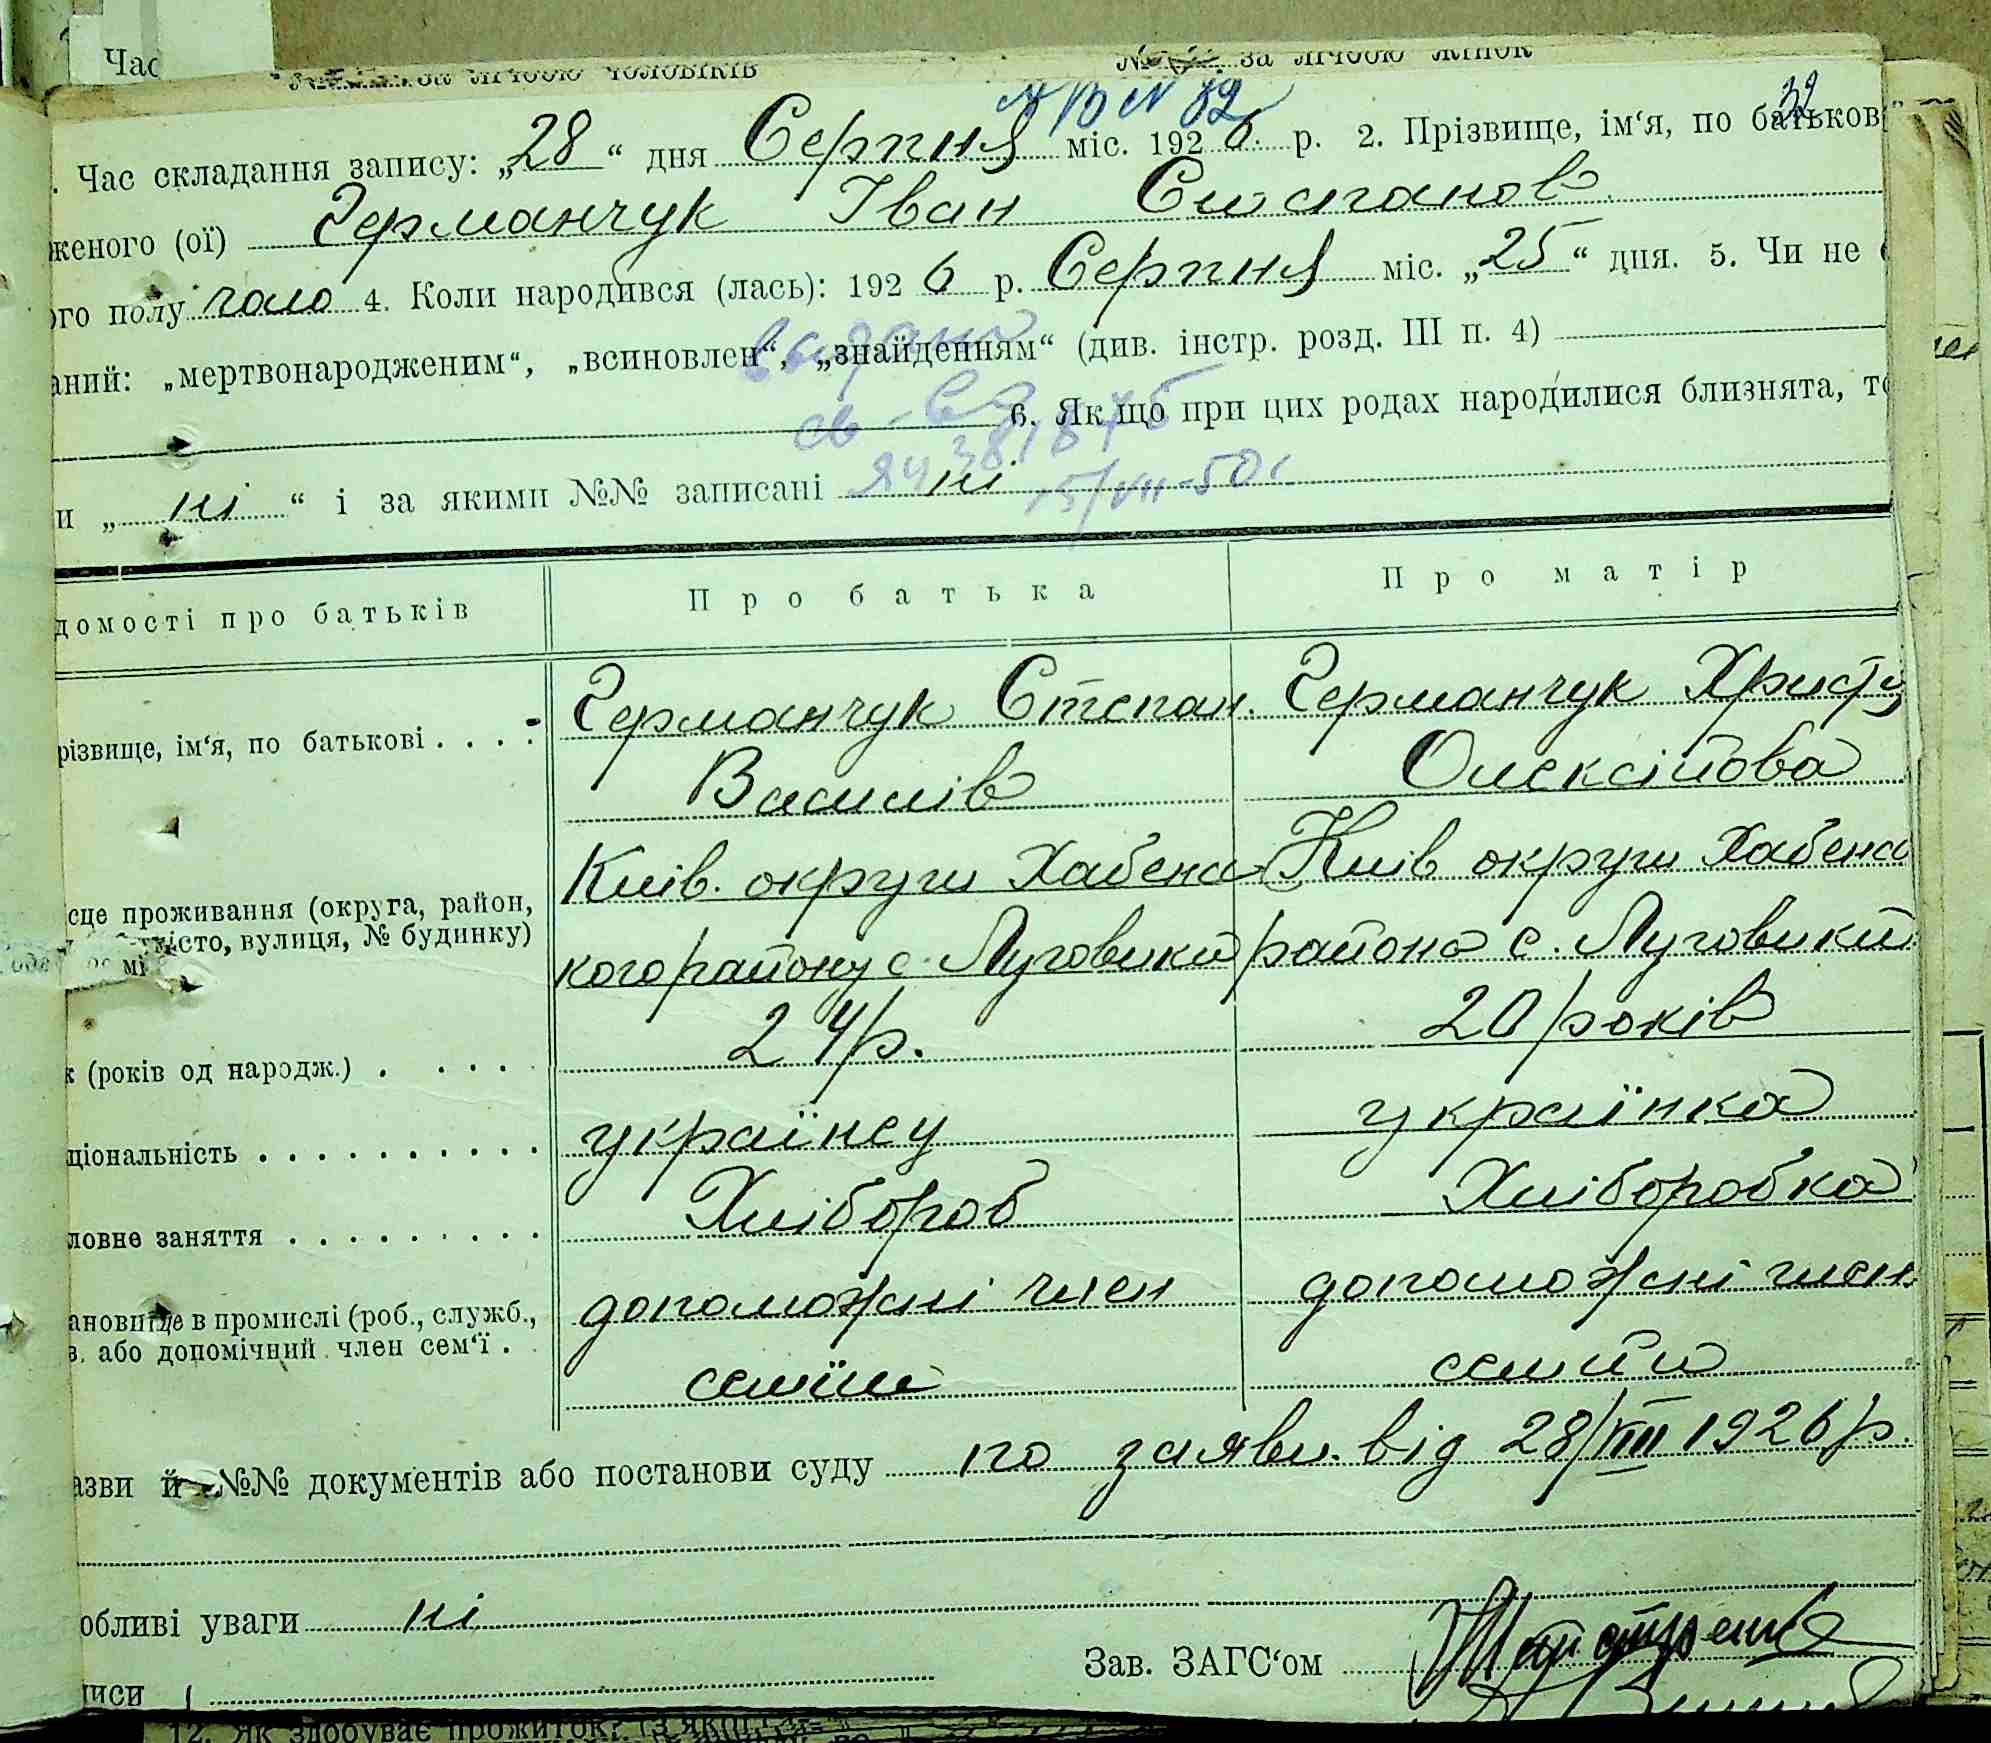 Час
за лічбою чоловіків № за лічбою жінок
№ 82 32
Час складання запису: „28“ дня Серпня міс. 1926 р. 2. Прізвище, ім‘я, по батькові
женого (ої) Германчук Іван Степанов
ого полу чоло 4. Коли народився (лась): 1926 р. Серпня міс. „25“ дня. 5. Чи не є
аний: „мертвонародженим“, „всиновлен“, „знайденням“ (див. інстр. розд. III п. 4)
видано
св-во 6. Якщо при цих родах народилися близнята, то
ЯЧ 381876
и „ні“ і за якими №№ записані ні
15/VII-50г
домості про батьків Про батька Про матір
різвище, ім‘я, по батькові Германчук Степан Германчук Христя
Василів Олексійова
Киів. округи Хабенс Киів округи Хабенс
сце проживання (округа, район,
місто, вулиця, № будинку) кого району с. Луговики района с. Луговики
к (років од народж.) 24 р. 20 років
ціональність українец українка
ловне заняття Хлібороб Хліборобка
ановище в промислі (роб., служб., допоможні член допоможні член
в. або допомічний член сем‘ї семїи семйи
азви й №№ документів або постанови суду по заяви від 28/VIII 1926 р.
обливі уваги ні
Зав. ЗАГС‘ом
писи
12. Як здобуває прожиток?